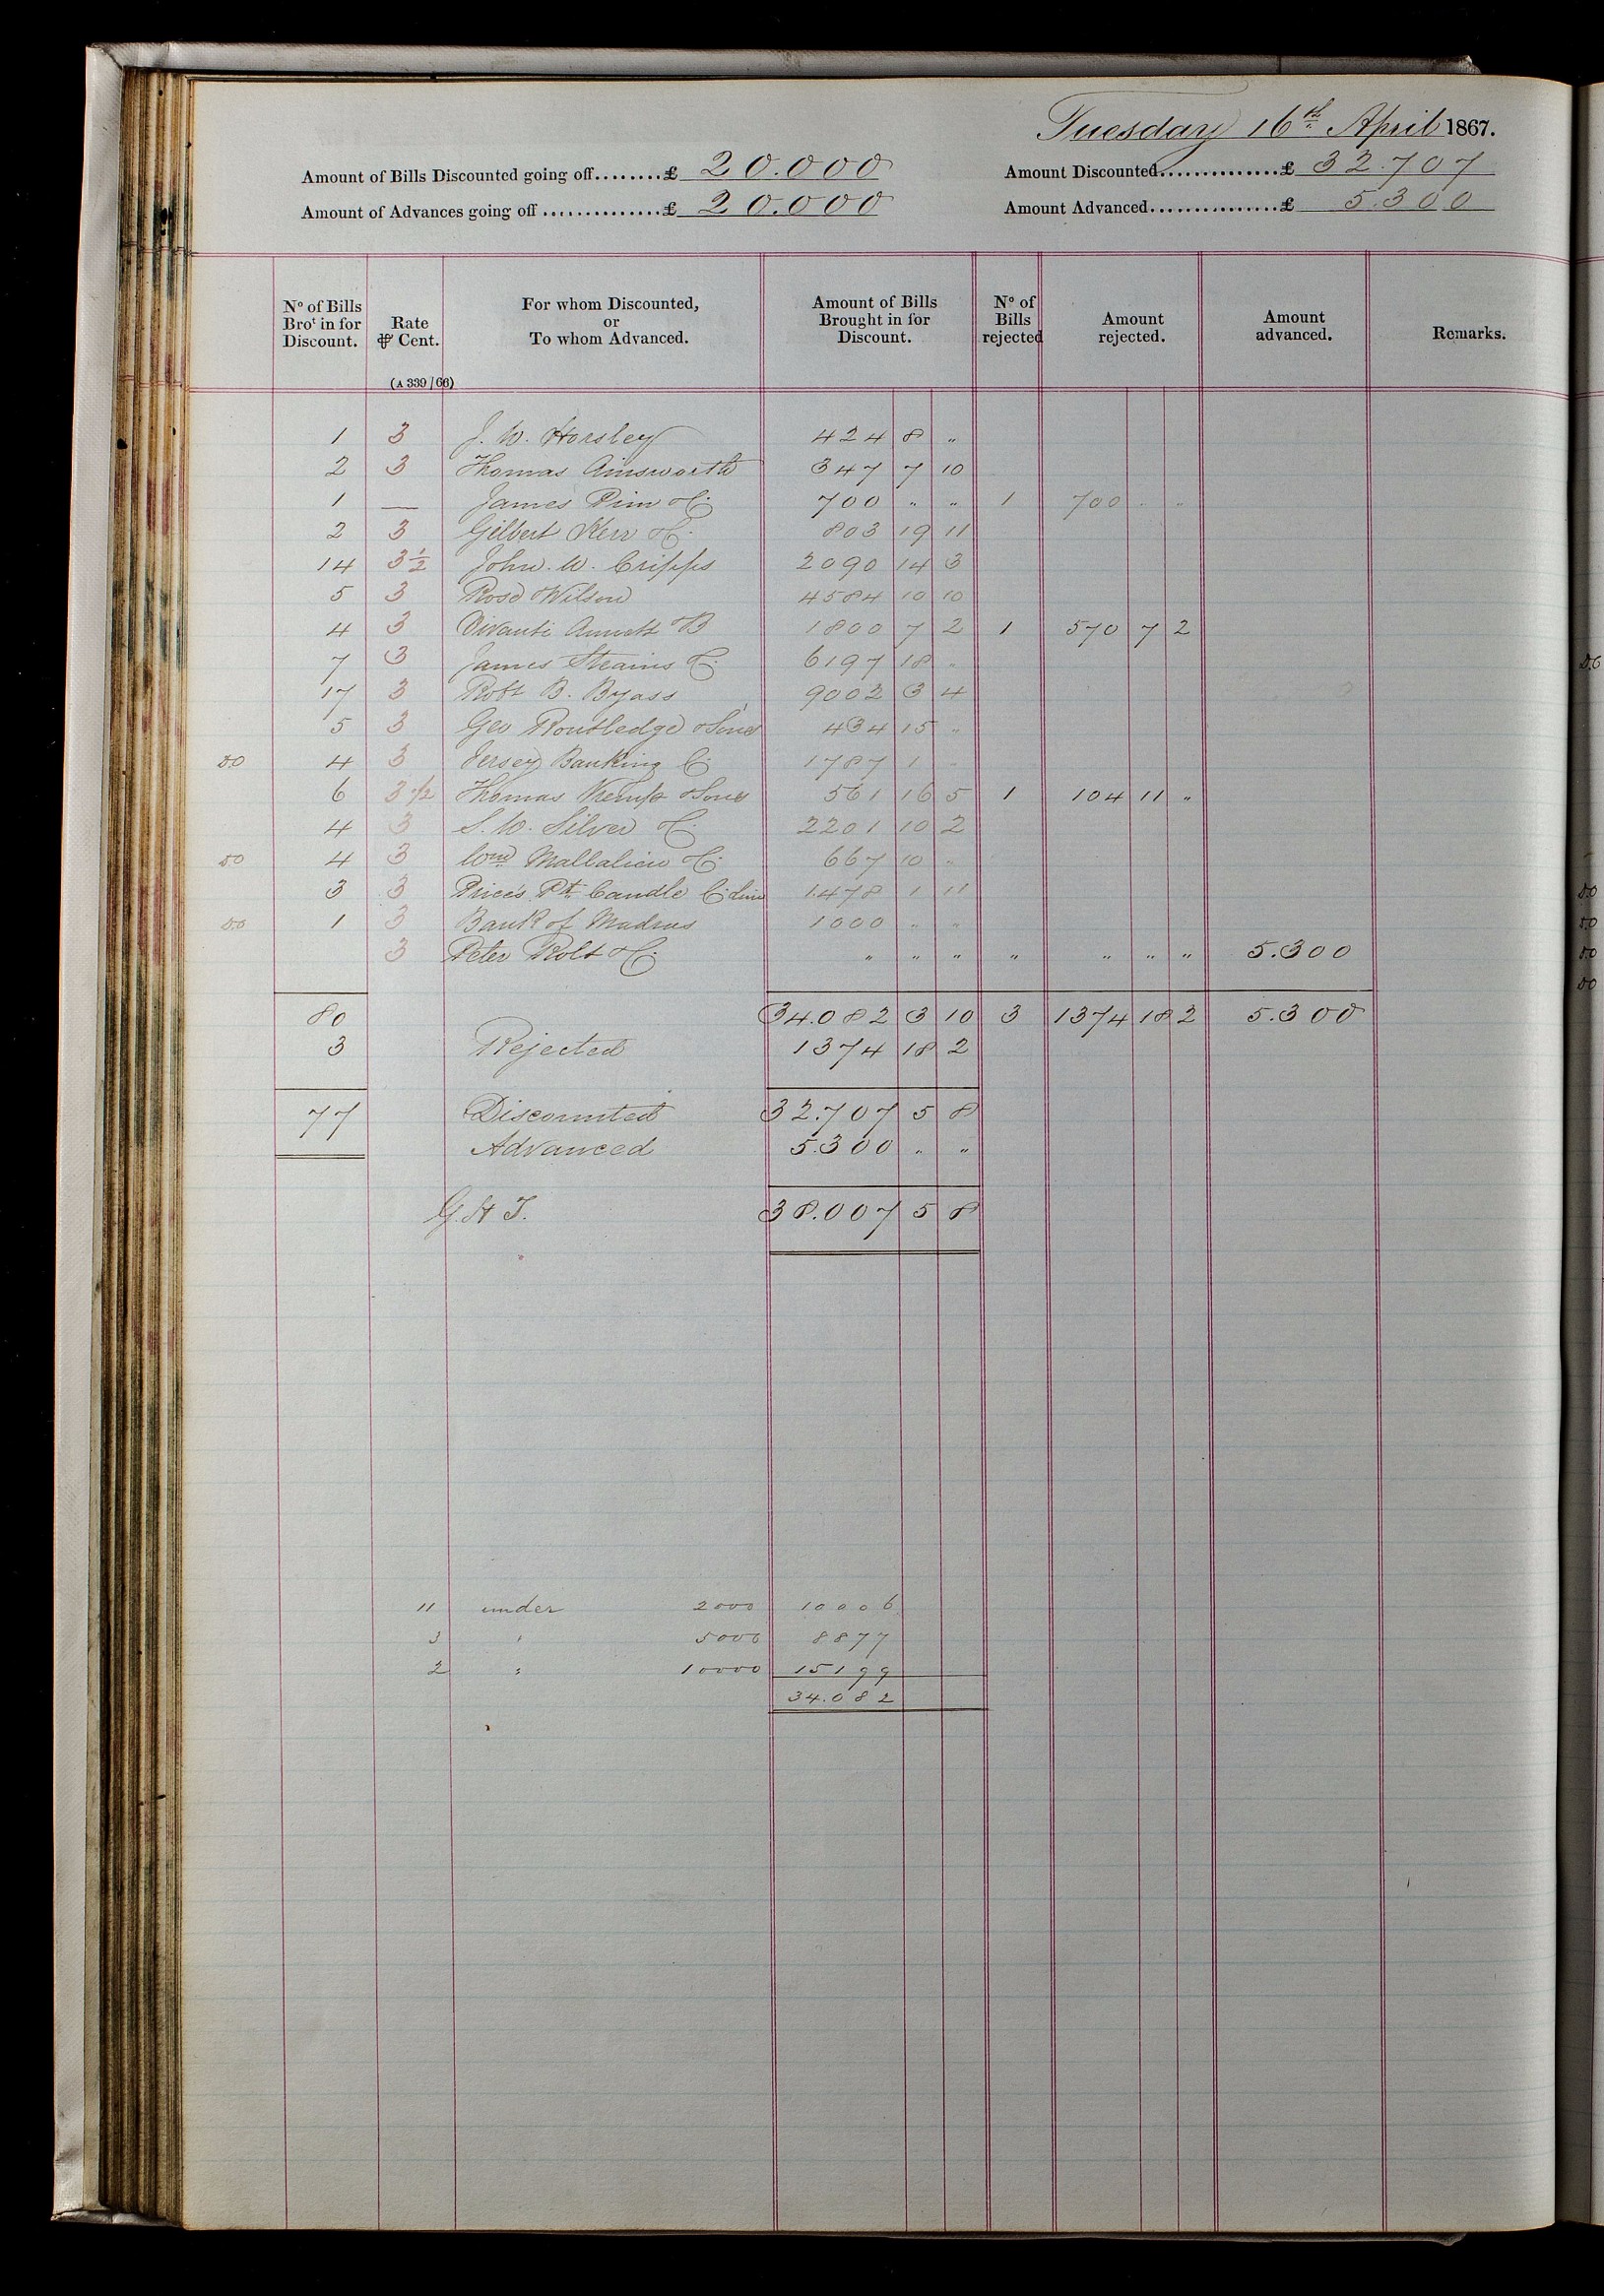 Tuesday 16th April 1867.
Amount of Bills Discounted going off........£ 20.000 Amount Discounted...............£ 32.707
Amount of Advances going off ..............£ 20.000 Amount Advanced................£ 5.300
No of Bills Brot in for Discount. Rate ⅌ Cent. (A 339/66) For whom Discounted, or To whom Advanced. Amount of Bills Brought in for Discount. No of Bills rejected Amount rejected. Amount advanced. Remarks.
1 3 J. W. Horsley 424 8 "
2 3 Thomas Ainsworth 347 7 10
1 — James Pim & Co. 700 " " 1 700 " "
2 3 Gilbert Kerr & Co. 803 19 11
14 3½ John. W. Cripps 2090 14 3
5 3 Rose Wilson 4584 10 10
4 3 Vivanti 1800 7 2 1 570 7 2
7 3 James Steains & Co. 6197 18 "
17 3 Robt B. Byass 9002 3 4
5 3 Geo Routledge & Sons 434 15 "
do 4 3 Jersey Banking Co. 1787 1 "
6 3½ Thomas Kemp & Sons 561 16 5 1 104 11 "
4 3 S. W. Silver & Co. 2201 10 2
do 4 3 Wm Mallalieu & Co. 667 10 "
3 3 Price's Pt. Candle Co Lim 1.478 1 11
do 1 3 Bank of Madras 1000 " "
3 Peter Rolt & Co. " " " " " " " 5.300
80 34.082 3 10 3 1374 18 2 5.300
3 Rejected 1374 18 2
77 Discounted 32.707 5 8
Advanced 5.300 " "
G. H T. 38.007 5 8
11 under 2000 10006
3 " 5000 8877
2 " 10000 15199
34.082